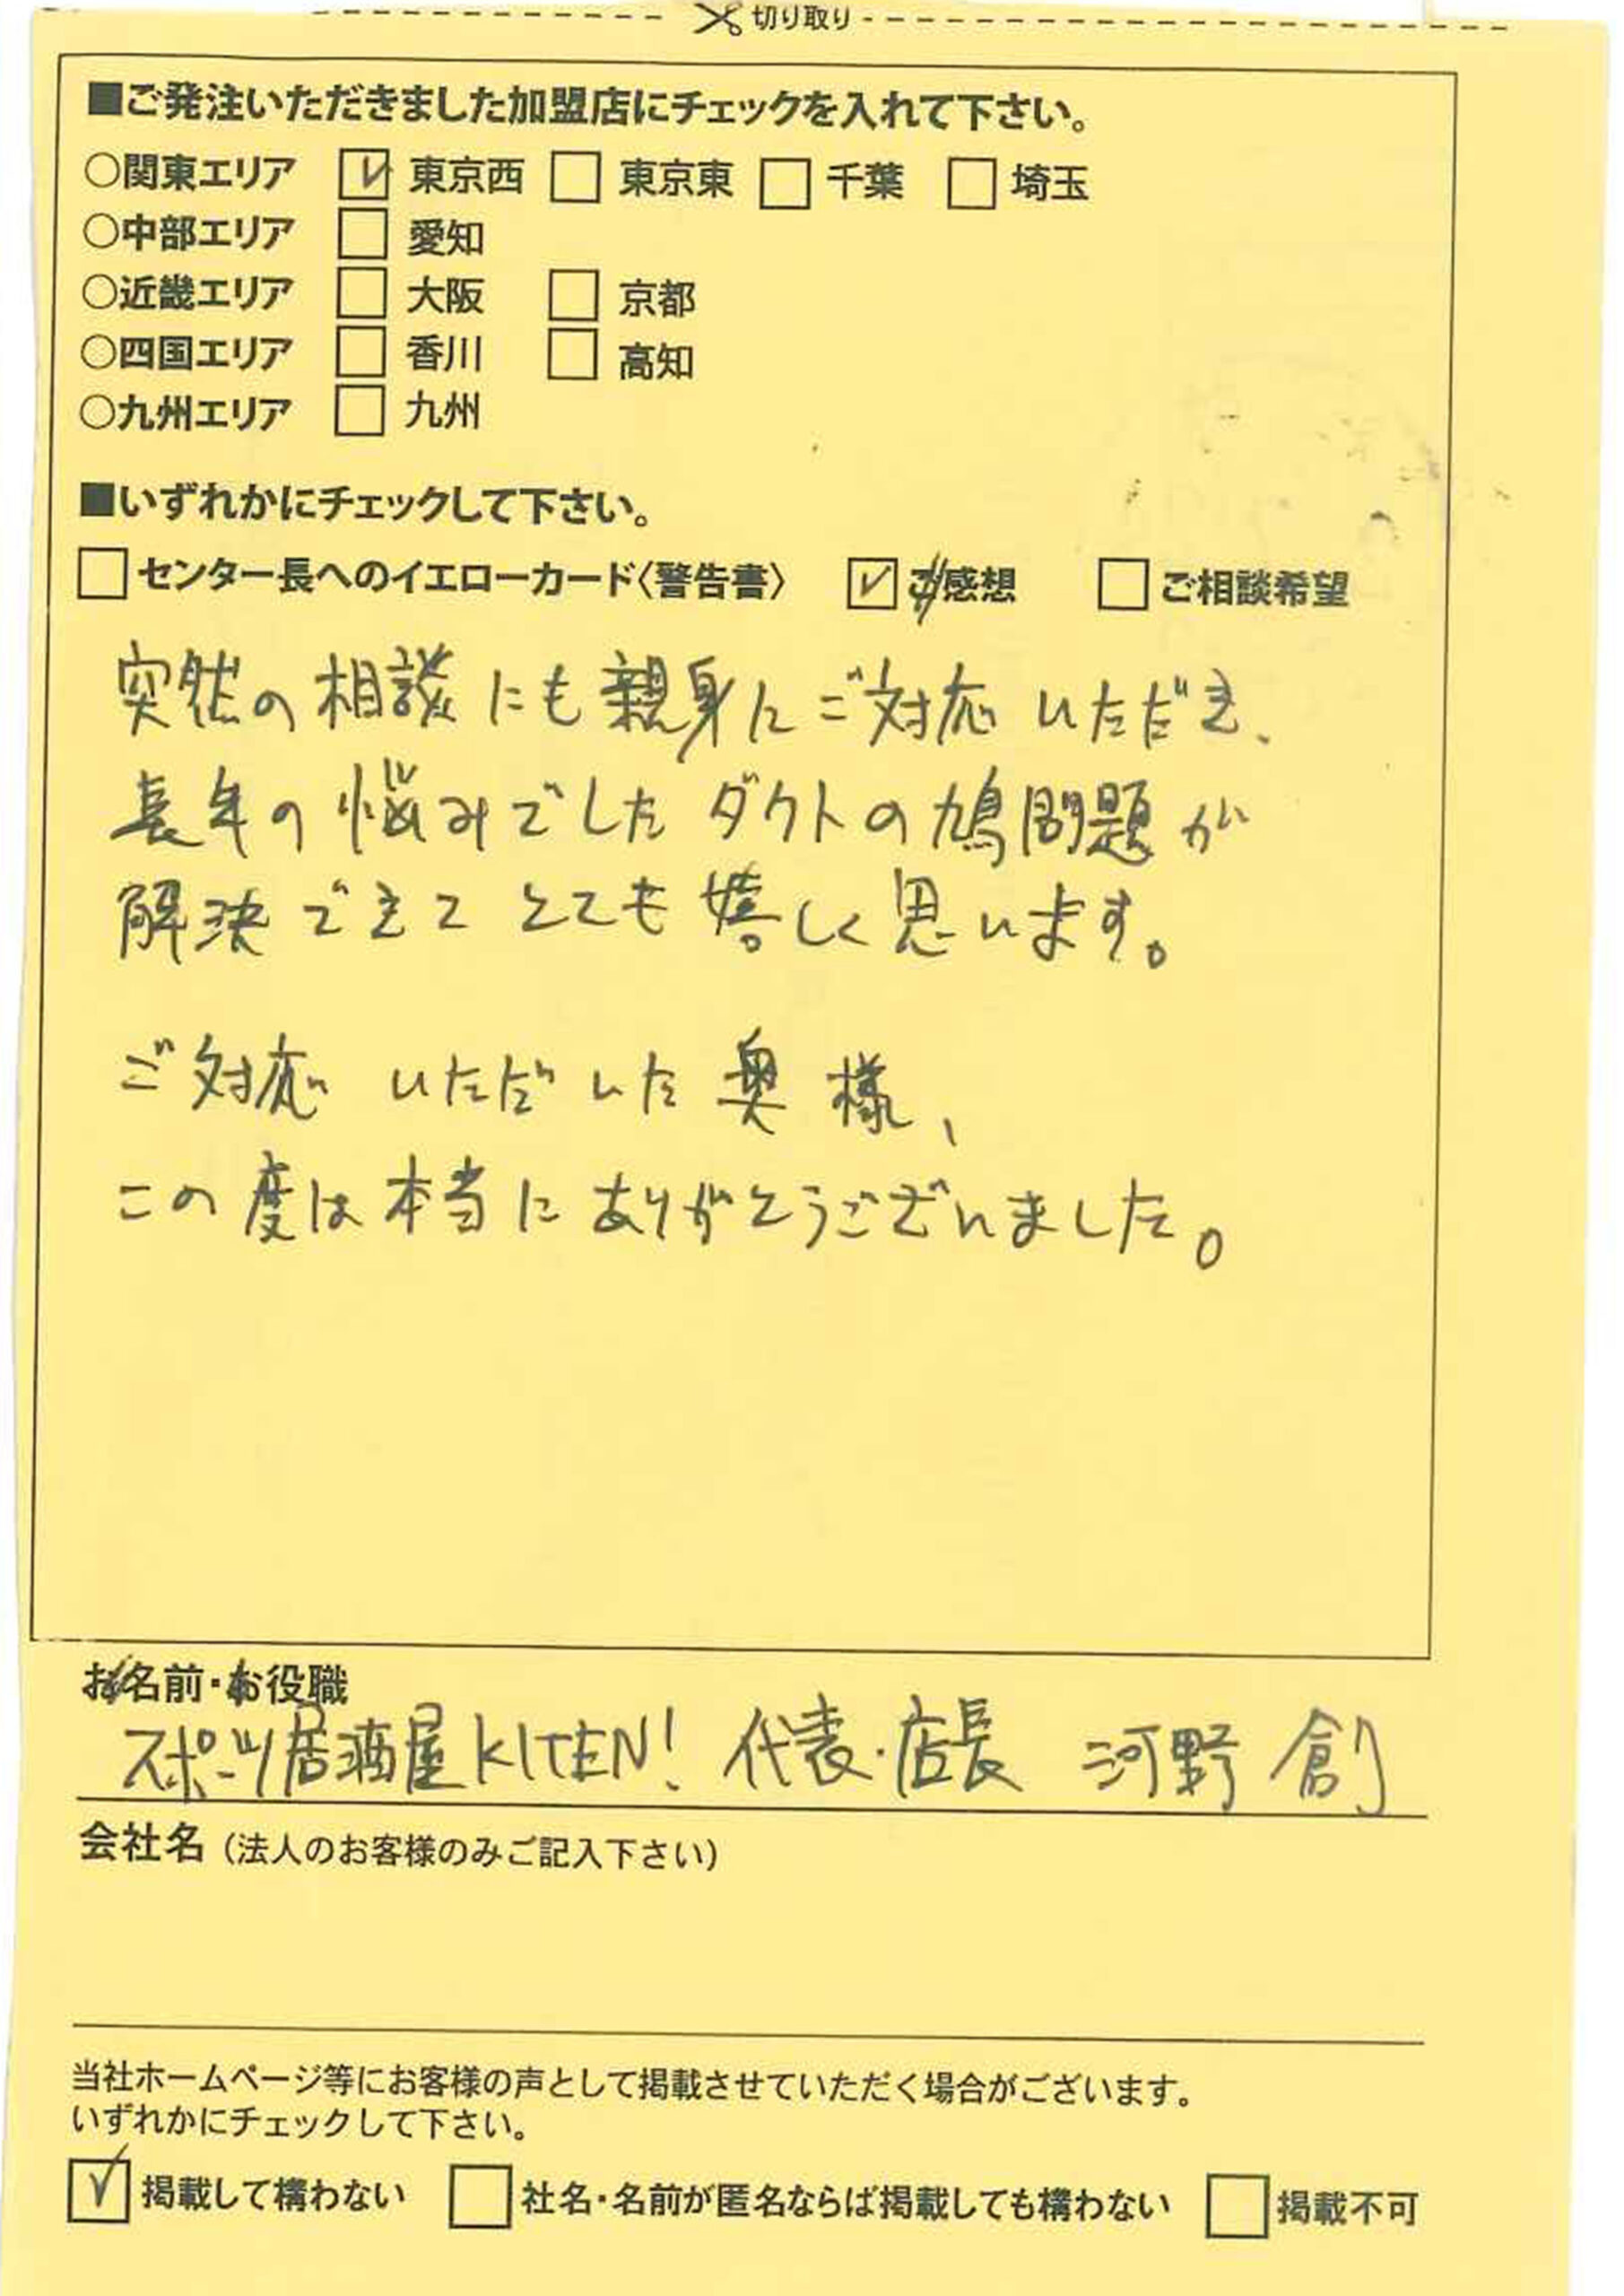 切り取り
■ご発注いただきました加盟店にチェックを入れて下さい。
○関東エリア ☑ 東京西 □ 東京東 □ 千葉 □ 埼玉
○中部エリア □ 愛知
○近畿エリア □ 大阪 □ 京都
○四国エリア □ 香川 □ 高知
○九州エリア □ 九州
■いずれかにチェックして下さい。
□センター長へのイエローカード〈警告書〉 ☑ご感想 □ご相談希望
突然の相談にも親身にご対応いただき、
長年の悩みでしたダクトの鳩問題が
解決できてとても嬉しく思います。
ご対応いただいた奥様、
この度は本当にありがとうございました。
お名前・お役職
スポーツ居酒屋KITEN! 代表・店長 河野 創
会社名（法人のお客様のみご記入下さい）
当社ホームページ等にお客様の声として掲載させていただく場合がございます。
いずれかにチェックして下さい。
☑掲載して構わない □社名・名前が匿名ならば掲載しても構わない □掲載不可